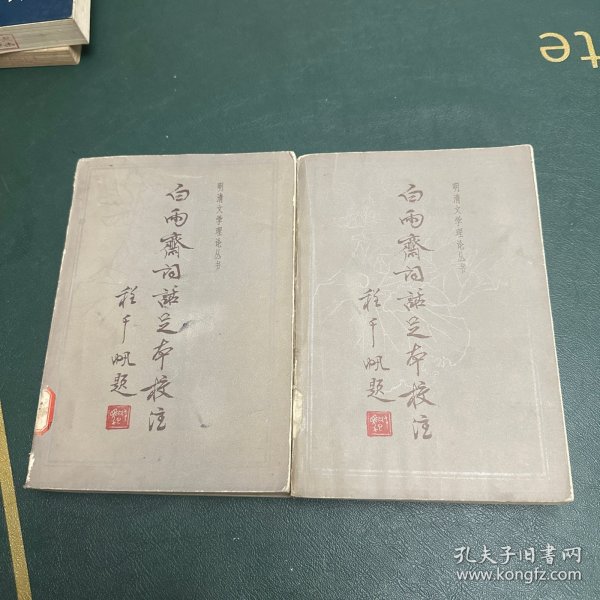 明清文学理论丛书
白雨齋詞話足本校注
程千帆题
明清文学理论丛书
白雨齋詞話足本校注
程千帆题
te
孔夫子旧书网
www.kongfz.com